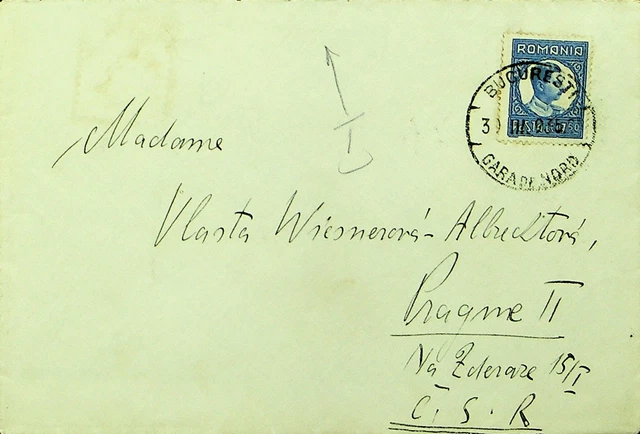 ROMANIA
BUCUREȘTI
GARA DE NORD
Madame
Vlasta Wiesnerová-Albrechtová,
Prague II
Na Zderaze 15/I
Č. S. R